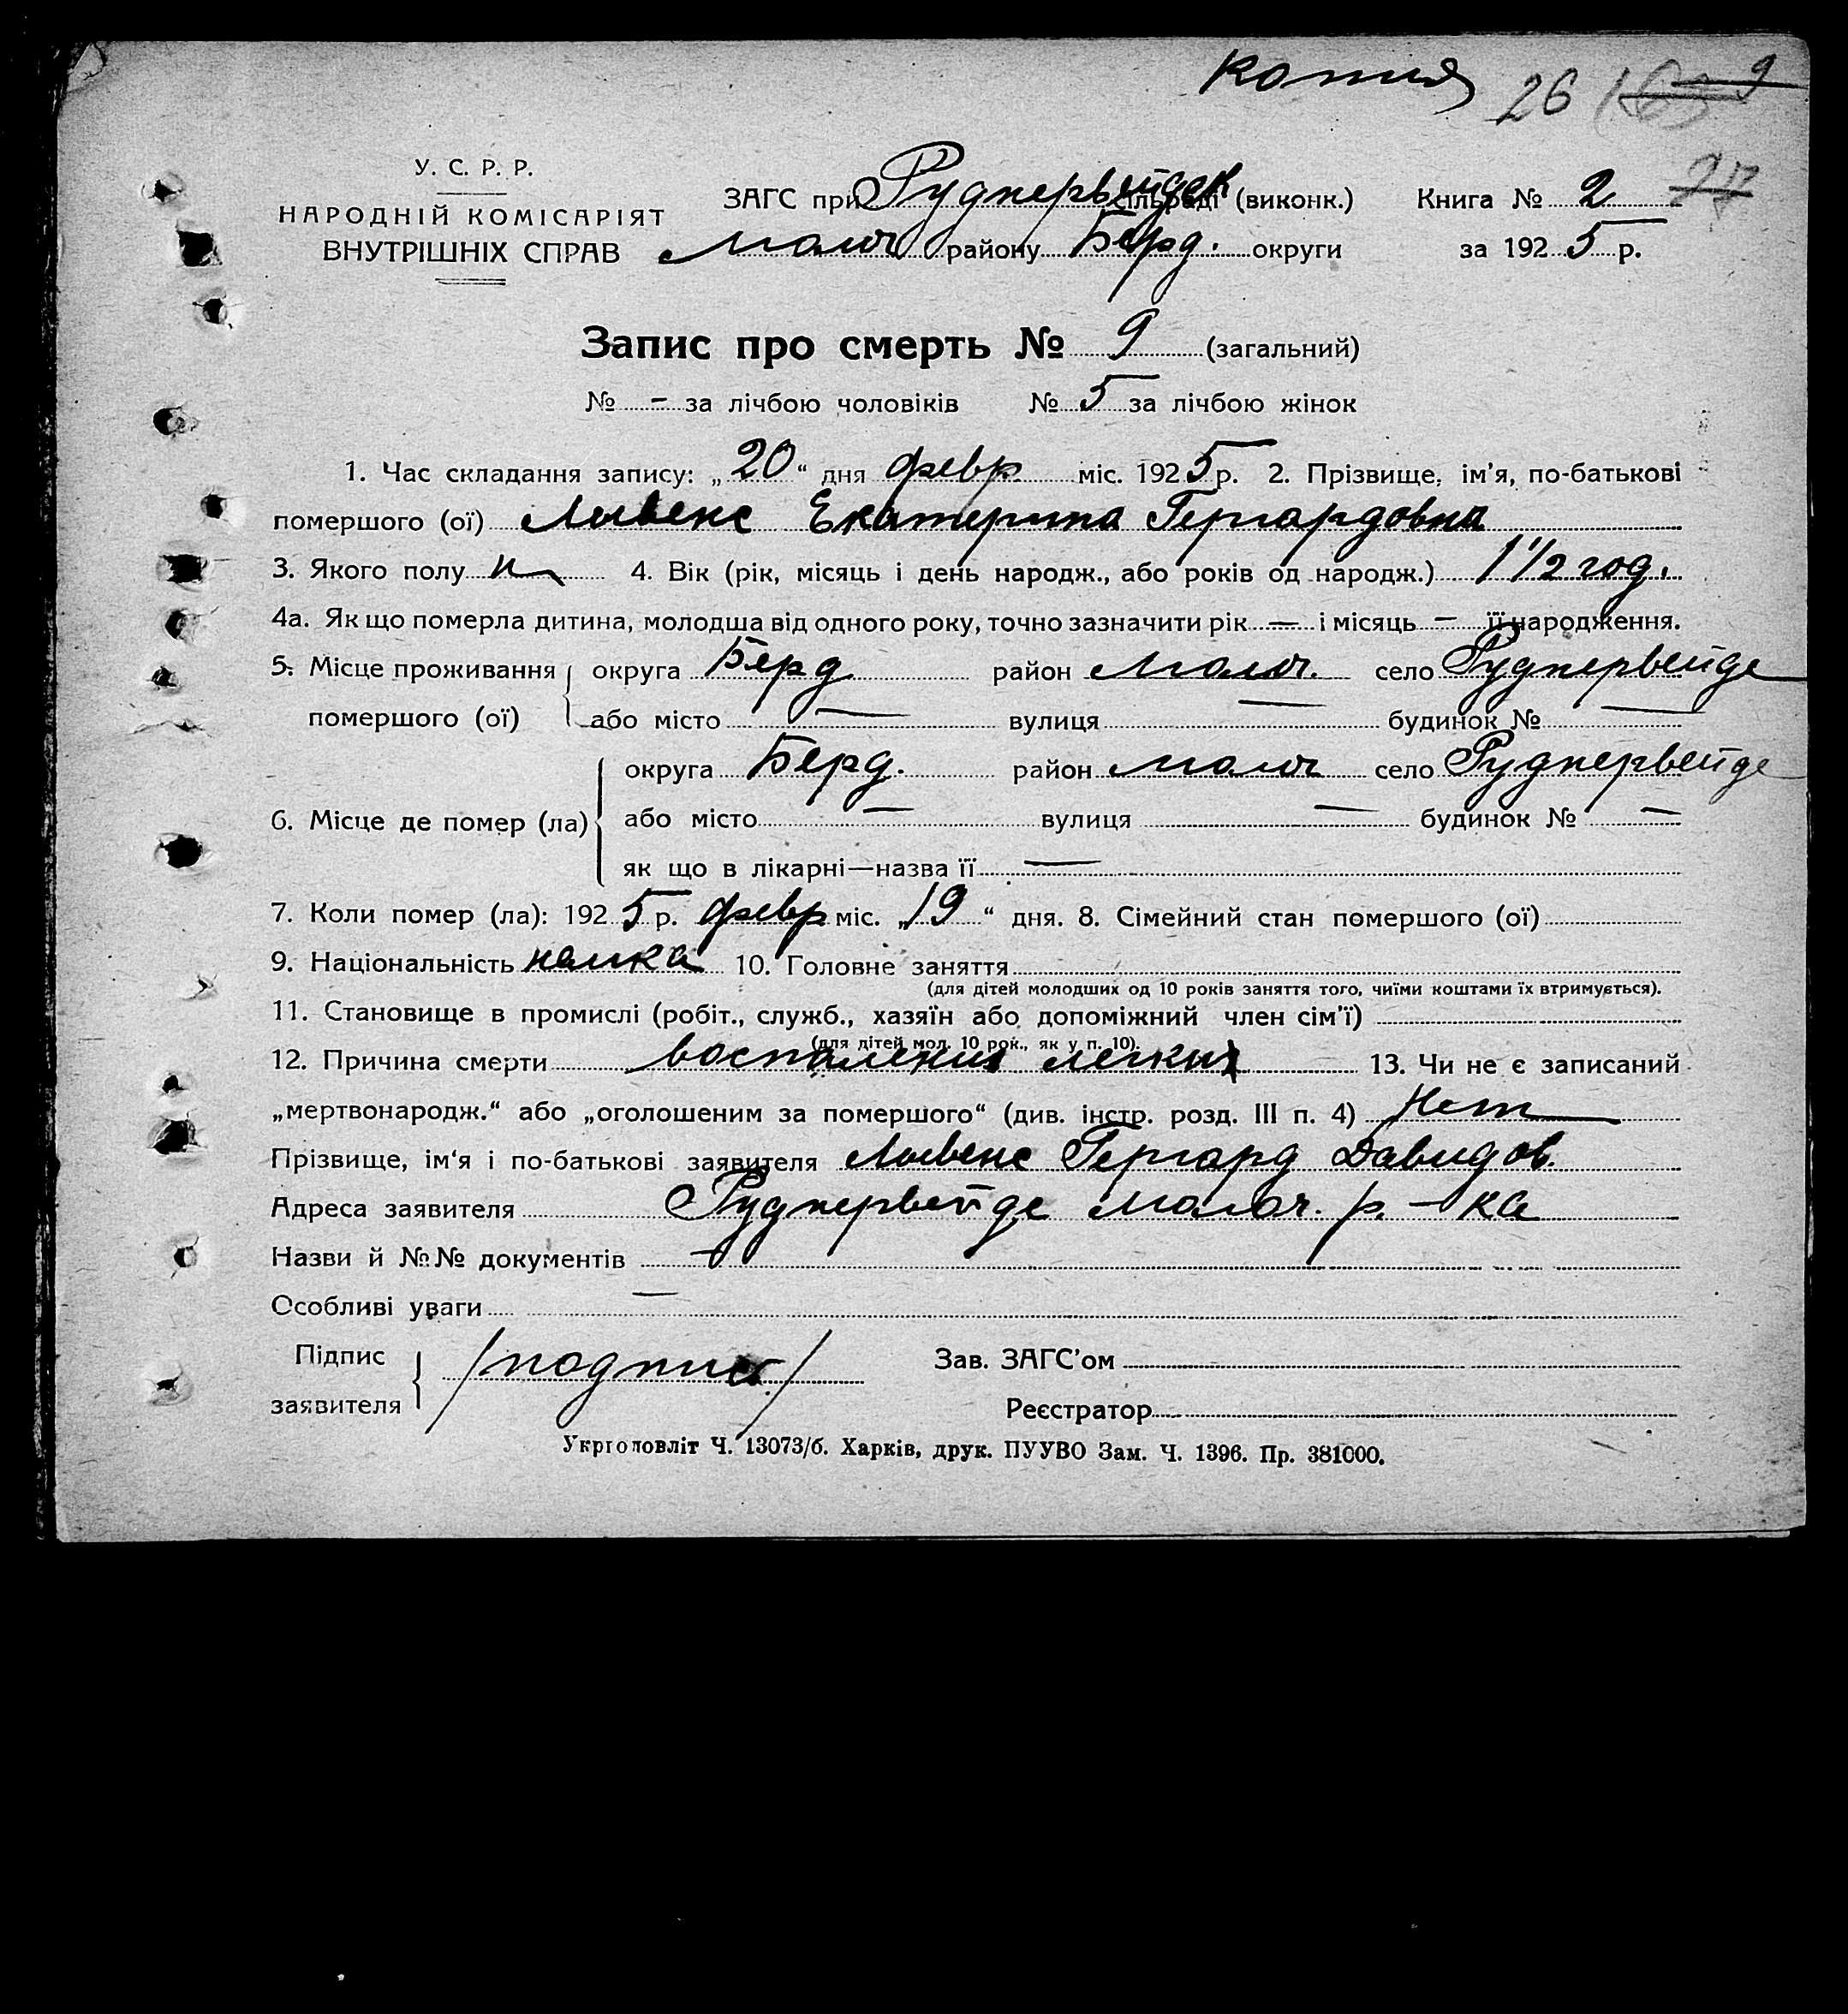 копия 26 9
У. С. Р. Р.
НАРОДНІЙ КОМІСАРІЯТ
ВНУТРІШНІХ СПРАВ
ЗАГС при Руднервейдск сільраді (виконк.) Книга № 2
молоч району Берд. округи за 1925 р.
Запис про смерть № 9 (загальний)
№ - за лічбою чоловіків № 5 за лічбою жінок
1. Час складання запису: „20“ дня февр. міс. 1925 р. 2. Прізвище, ім'я, по-батькові
помершого (ої) Левенс Екатерина Гергардовна
3. Якого полу 4. Вік (рік, місяць і день народж., або років од народж.) 1 1/2 год.
4а. Як що померла дитина, молодша від одного року, точно зазначити рік — і місяць — її народження.
5. Місце проживання округа Берд район Молоч. село Руднервейде
помершого (ої) або місто — вулиця — будинок № —
округа Берд. район молоч село Руднервейде
6. Місце де помер (ла) або місто — вулиця — будинок № —
як що в лікарні—назва її —
7. Коли помер (ла): 1925 р. февр міс. „19“ дня. 8. Сімейний стан помершого (ої)
9. Національність немка 10. Головне заняття
(для дітей молодших од 10 років заняття того, чиїми коштами їх втримується).
11. Становище в промислі (робіт., служб., хазяїн або допоміжний член сім'ї)
(для дітей мол. 10 рок., як у п. 10).
12. Причина смерти воспаления легких 13. Чи не є записаний
„мертвонародж.“ або „оголошеним за помершого“ (див. інстр. розд. III п. 4) Нет
Прізвище, ім'я і по-батькові заявителя Левенс Гергард Давидов.
Адреса заявителя Руднервейде Молоч. р.-ка
Назви й №№ документів —
Особливі уваги —
Підпис
заявителя /подпись/ Зав. ЗАГС'ом
Реєстратор
Укрголовліт Ч. 13073/б. Харків, друк. ПУУВО Зам. Ч. 1396. Пр. 381000.